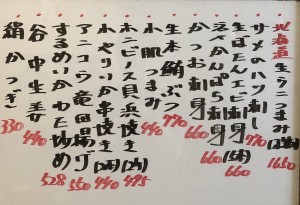 北海道生うにつまみ 1650
サメのハツ刺し 770
生ぼたんエビ刺身 (1ヶ) 660
えべかんぱち刺身 660
かつお刺身 660
生本鮪ぶつ 770
小肌つまみ 440
ホンビノス貝浜焼き (2ヶ) 495
小やりいか串焼き (2本) 440
アニコウ竜田揚げ 550
するめいかわた炒め 528
谷中生姜 440
絹かつぎ 330